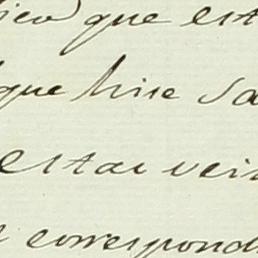 que est
que hise sa
estar vein
correspond